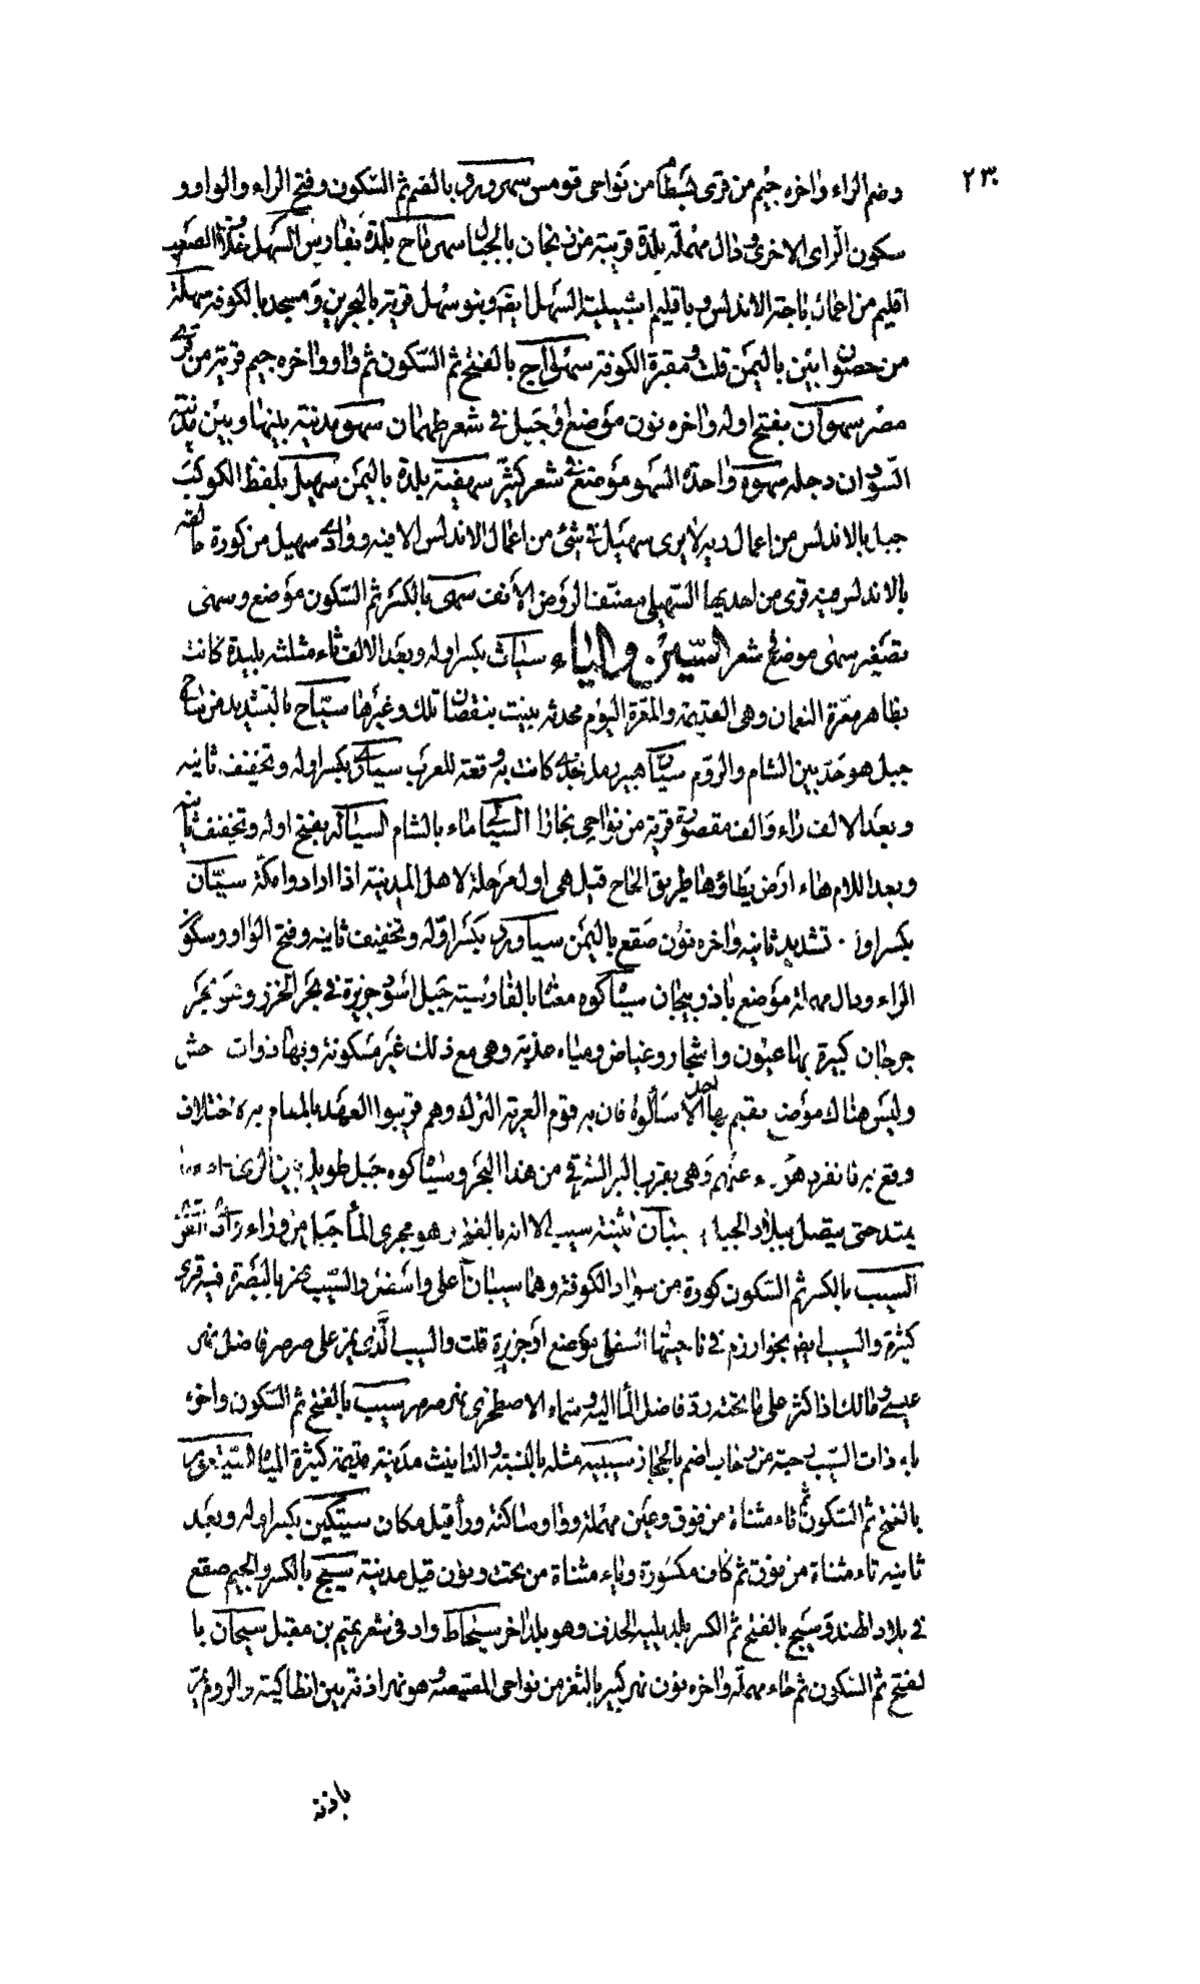 ٢٣٠
وضم الراء واخره جيم من قرى بسطام من نواحى قومس سهرورد بالضم ثم السكون وفتح الراء والواو و
سكون الراى الاخرى ودال مهملة بلدة قريبة من زنجان بالجبال سهرياج بلدة بفارس السهل
اقليم من اعمال باجة الاندلس وباقليم اشبيلية السهل ايضا وبنو سهل قرية بالبحرين ومسجد بالكوفة سهلة
من حصون ابين باليمن قلت ومقبرة الكوفة سهلواج بالفتح ثم السكون ثم واو واخره جيم قرية من قرى
مصر سهوان بفتح اوله واخره نون موضع او جبل فى شعر طهمان سهو مدينة بينها وبين مدينة
السودان دجله سهوة واحدة السهو موضع فى شعر كثير سهفية بلدة باليمن سهيل بلفظ الكوكب
جبل بالاندلس من اعمال ريه لا يرى سهيل فى شئ من اعمال الاندلس الا فيه ووادى سهيل من كورة مالقه
بالاندلس فيه قرى من احديها السهيلى مصنف الروض الأنف سهى بالكسر ثم السكون موضع وسهنى
تصغير سهى موضع فى شعر السين والياء سياث بكسر اوله وبعد الالف ثاء مثلثه بليدة كانت
بظاهر معرة النعمان وهى القديمة والمعرة اليوم محدثه بنيت بنقض تلك وغيرها سياح بالتشديد من
جبل هو حد بين الشام والروم سيا هبير رمل نجد كانت به وقعة للعرب سيارى بكسر اوله وتخفيف ثانيه
وبعد الالف راء والف مقصورة قرية من نواحى بخارا السيا ماء بالشام السيالة بفتح اوله وتخفيف ثانيه
وبعد اللام هاء ارض يطاؤها طريق الحاج قيل هى اول مرحلة لاهل المدينة اذا ارادوا مكة سيّان
بكسر اوله وتشديد ثانيه واخره نون صقع باليمن سياورد بكسر اوله وتخفيف ثانيه وفتح الواو وسكون
الراء ودال مهملة موضع باذربيجان سياكوه معناه بالفارسية جبل اسود جزيرة فى بحر الخزر وهو بحر
جرجان كبيرة بها عيون واشجار وغياض ومياه عذبة وهى مع ذلك غير مسكونة وبها دواب وحش
وليس هناك موضع يقيم بها احد الا سالوه فان به قوم الغزية الترك وهم قريبوا العهد بالمقام به لاختلاف
وقع به فانفرد هؤلاء عنهم وهى بقرب البر الشرقى من هذا البحر وسياكوه جبل طويل بين الرى
يمتد حتى يتصل ببلاد الجبال سيبان تثنية سيب الا انه بالفتح وهو مجرى الماء جبل من وراء وادى القرى
السيب بالكسر ثم السكون كورة من سواد الكوفة وهما سيبان اعلى واسفل والسيب نهر بالبصرة فيه قرى
كثيرة والسيب ايضا بخوارزم فى ناحيتها السفلى موضع او جزيرة قلت والسيب الذى يمر على صرصر فاضل نهر
عيسى وذلك اذا كثر على ما تحته رد فاضل الماء اليه وسماه الاصطخرى نهر صرصر سيب بالفتح ثم السكون واخره
باء ذات السيب رحبة من رحاب اضم بالحجاز سيبيه مثله بالنسبة والتانيث مدينة قديمة كثيرة المياه
بالفتح ثم السكون ثم تاء مثناة من فوق وعين مهملة وواو ساكنة وراء قيل مكان سيتكين بكسر اوله وبعد
ثانيه تاء مثناة من فوق ثم كاف مكسورة وياء مثناة من تحت ونون قيل مدينة سيج بالكسر والجيم صقع
فى بلاد الهند وسيج بالفتح ثم الكسر بلد يليه الحذف وهو بلد اخر سيحاط واد فى شعر تميم بن مقبل سيحان با
لفتح ثم السكون ثم حاء مهملة واخره نون نهر كبير بالثغر من نواحى المصيصة وهو نهر اذنة بين انطاكية والروم يمر
باذنة